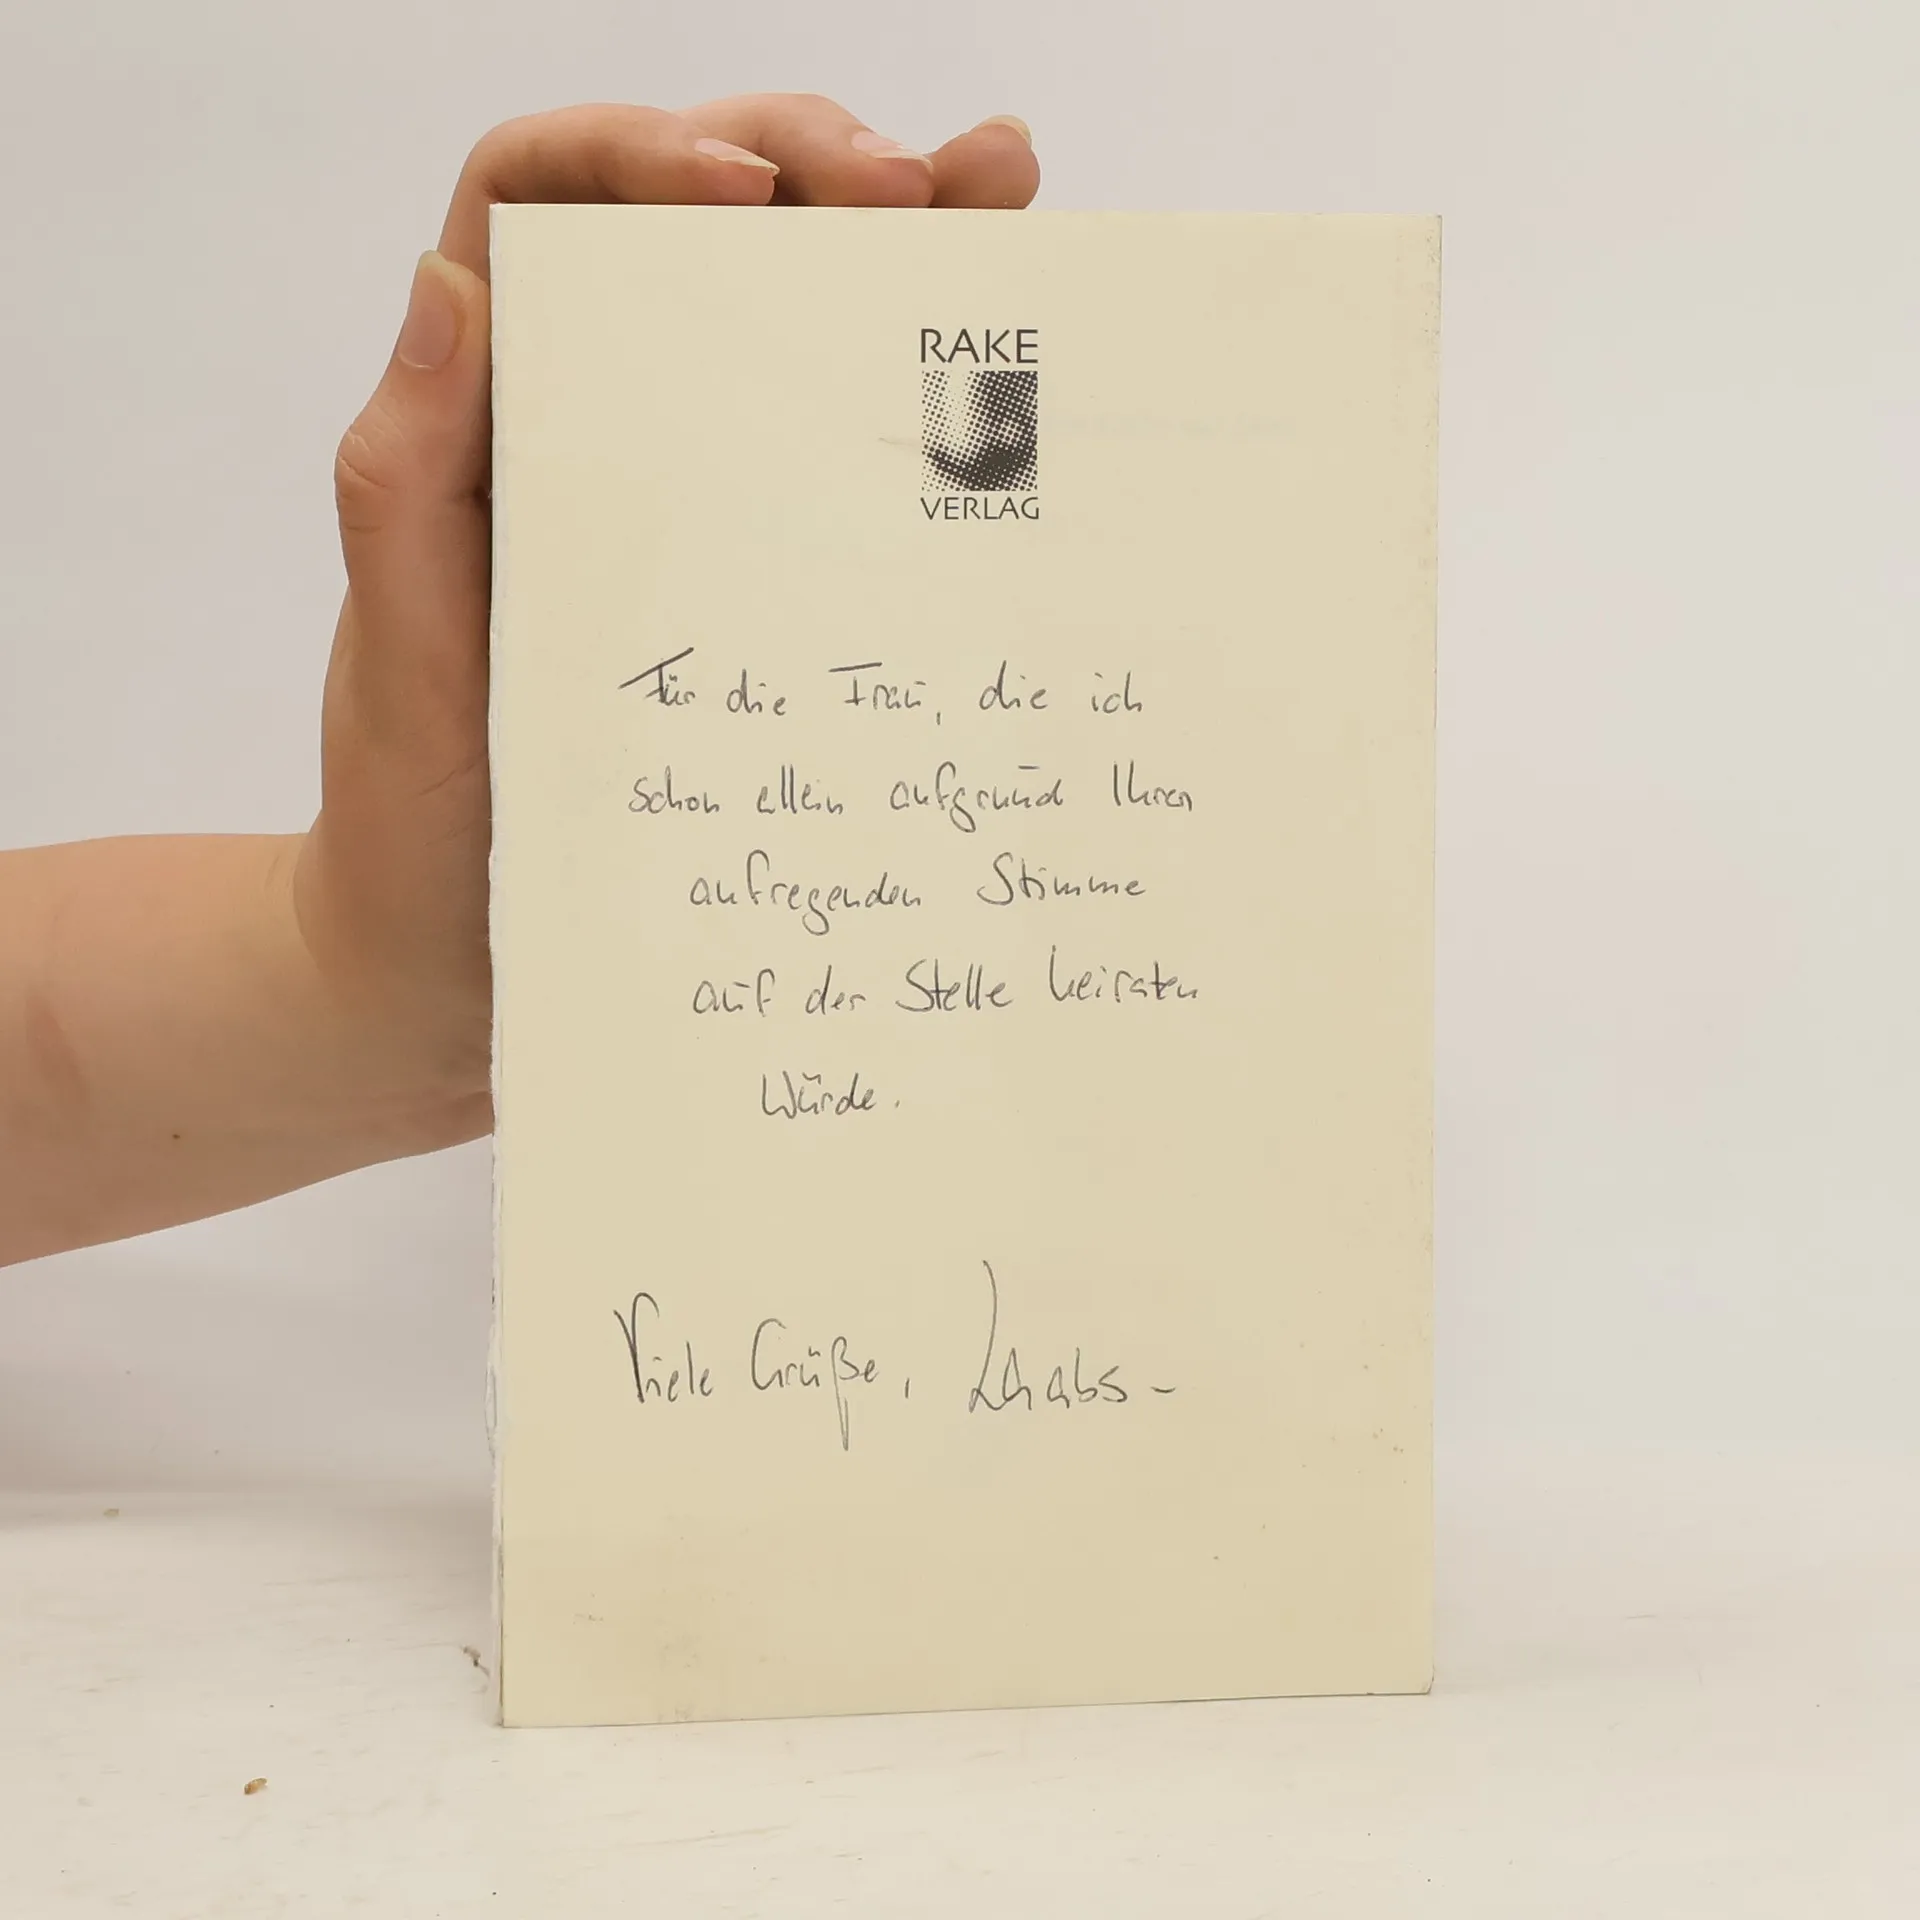 RAKE
VERLAG
Für die Frau, die ich
schon allein aufgrund Ihrer
aufregenden Stimme
auf der Stelle heiraten
würde.
Viele Grüße,